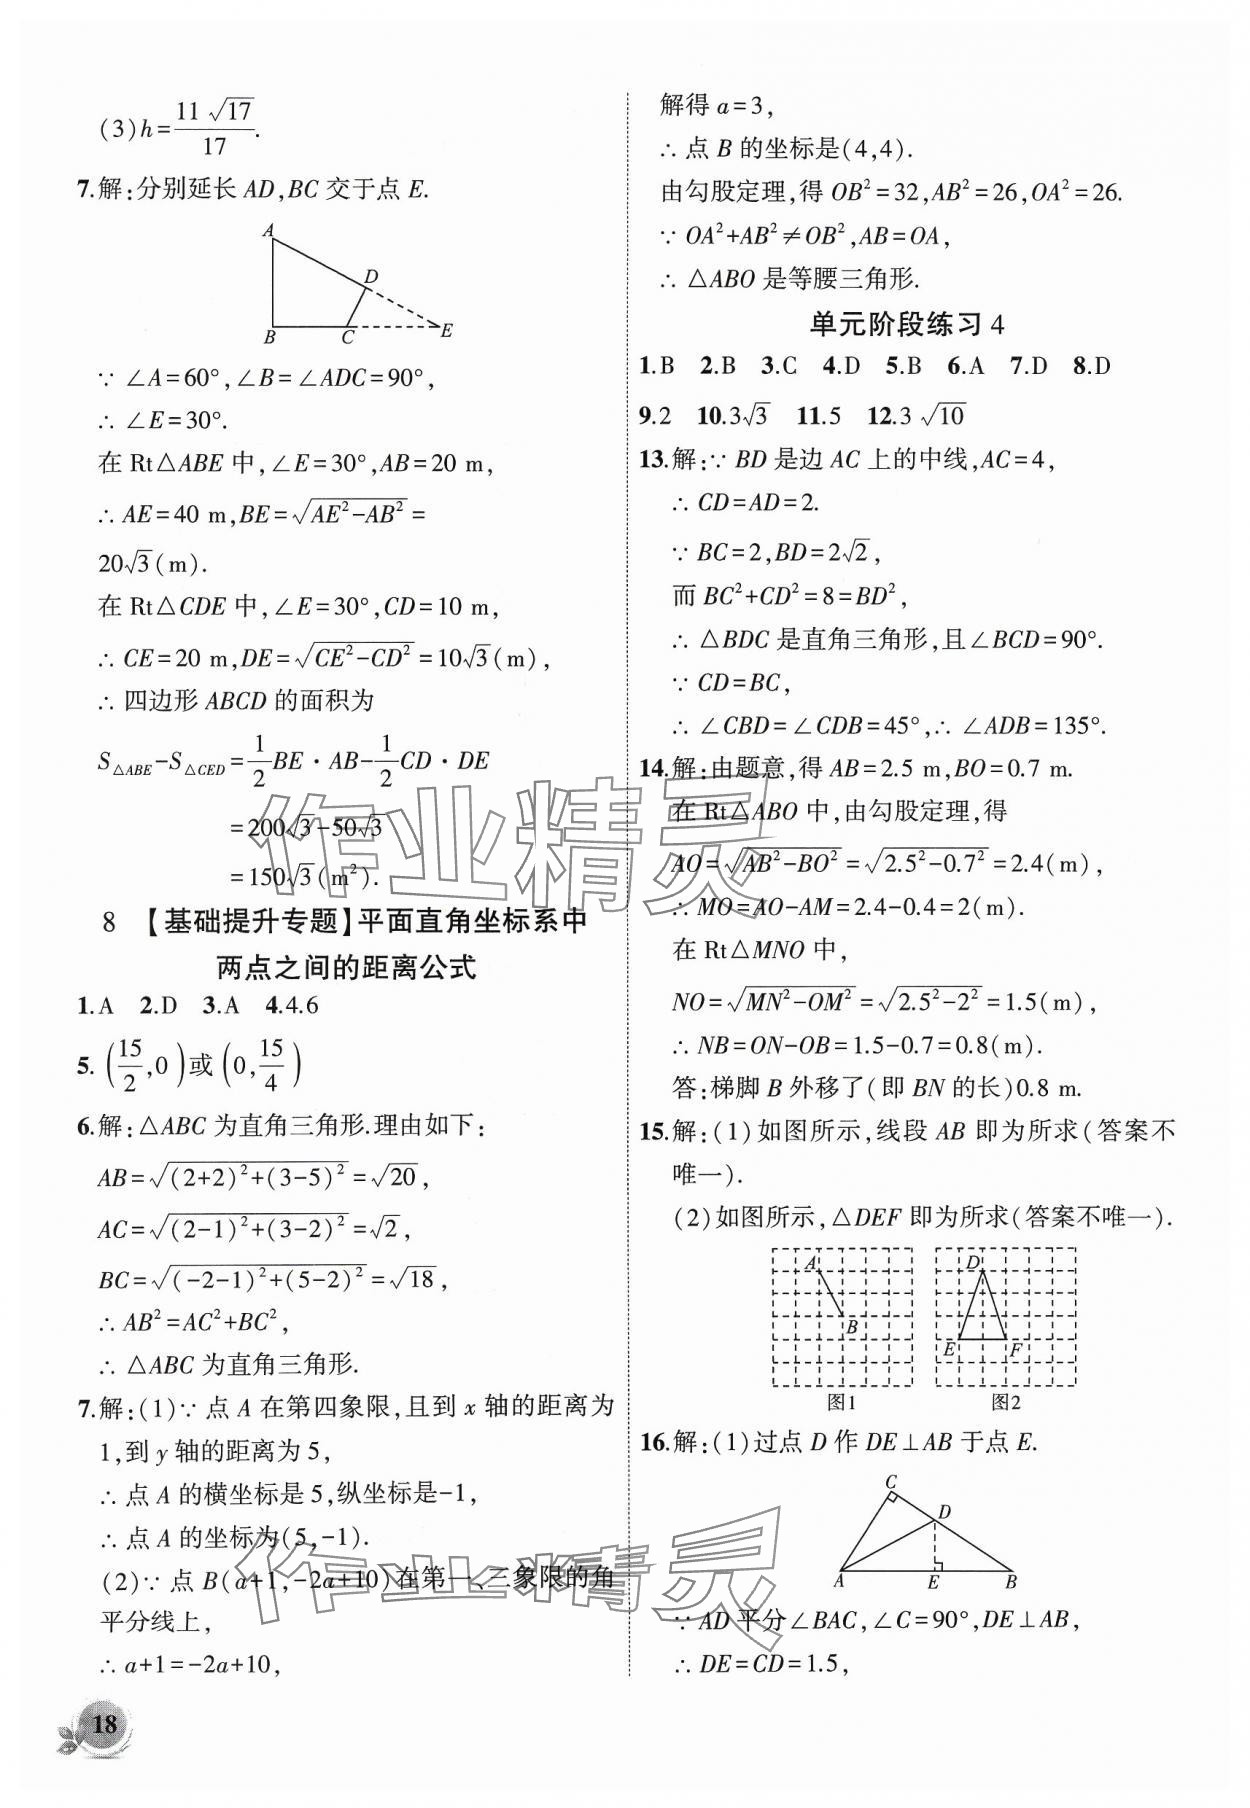 (3)h=11√17/17.
7.解:分别延长 AD,BC 交于点 E.
A
D
B
C
E
∵ ∠A=60°,∠B=∠ADC=90°,
∴ ∠E=30°.
在 Rt△ABE 中,∠E=30°,AB=20 m,
∴ AE=40 m,BE=√(AE²-AB²)=
20√3(m).
在 Rt△CDE 中,∠E=30°,CD=10 m,
∴ CE=20 m,DE=√(CE²-CD²)=10√3(m),
∴ 四边形 ABCD 的面积为
S△ABE-S△CED=1/2BE·AB-1/2CD·DE
=200√3-50√3
=150√3(m²).
8 【基础提升专题】平面直角坐标系中
两点之间的距离公式
1.A 2.D 3.A 4.4.6
5.(15/2,0)或(0,15/4)
6.解:△ABC 为直角三角形.理由如下:
AB=√((2+2)²+(3-5)²)=√20,
AC=√((2-1)²+(3-2)²)=√2,
BC=√((-2-1)²+(5-2)²)=√18,
∴ AB²=AC²+BC²,
∴ △ABC 为直角三角形.
7.解:(1)∵ 点 A 在第四象限,且到 x 轴的距离为
1,到 y 轴的距离为 5,
∴ 点 A 的横坐标是 5,纵坐标是-1,
∴ 点 A 的坐标为(5,-1).
(2)∵ 点 B(a+1,-2a+10)在第一、三象限的角
平分线上,
∴ a+1=-2a+10,
解得 a=3,
∴ 点 B 的坐标是(4,4).
由勾股定理,得 OB²=32,AB²=26,OA²=26.
∵ OA²+AB²≠OB²,AB=OA,
∴ △ABO 是等腰三角形.
单元阶段练习 4
1.B 2.B 3.C 4.D 5.B 6.A 7.D 8.D
9.2 10.3√3 11.5 12.3√10
13.解:∵ BD 是边 AC 上的中线,AC=4,
∴ CD=AD=2.
∵ BC=2,BD=2√2,
而 BC²+CD²=8=BD²,
∴ △BDC 是直角三角形,且∠BCD=90°.
∵ CD=BC,
∴ ∠CBD=∠CDB=45°,∴ ∠ADB=135°.
14.解:由题意,得 AB=2.5 m,BO=0.7 m.
在 Rt△ABO 中,由勾股定理,得
AO=√(AB²-BO²)=√(2.5²-0.7²)=2.4(m),
∴ MO=AO-AM=2.4-0.4=2(m).
在 Rt△MNO 中,
NO=√(MN²-OM²)=√(2.5²-2²)=1.5(m),
∴ NB=ON-OB=1.5-0.7=0.8(m).
答:梯脚 B 外移了(即 BN 的长)0.8 m.
15.解:(1)如图所示,线段 AB 即为所求(答案不
唯一).
(2)如图所示,△DEF 即为所求(答案不唯一).
A
B
图1
D
E
F
图2
16.解:(1)过点 D 作 DE⊥AB 于点 E.
C
D
A
E
B
∵ AD 平分∠BAC,∠C=90°,DE⊥AB,
∴ DE=CD=1.5,
18
作业精灵
作业精灵